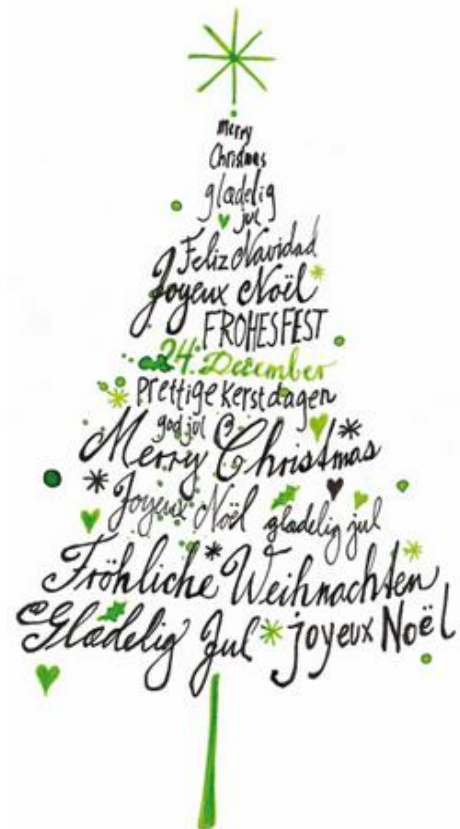 merry
Christmas
glædelig
jul
Feliz Navidad
Joyeux Noël
FROHES FEST
24. December
Prettige Kerstdagen
god jul
Merry Christmas
Joyeux Noël glædelig jul
Fröhliche Weihnachten
Glædelig Jul joyeux Noël